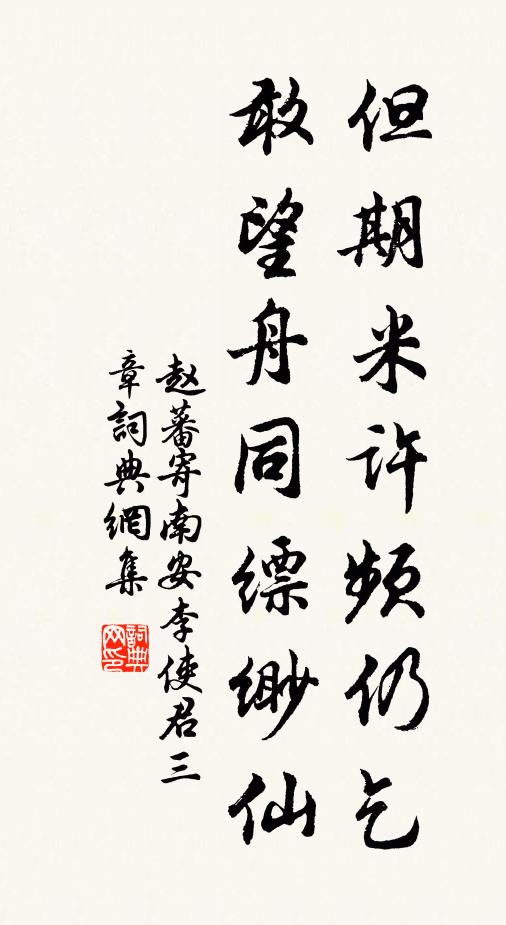 但期米许频仍乞
敢望舟同缥缈仙
赵蕃寄南安李使君三
章詞典網集
詞典
网印